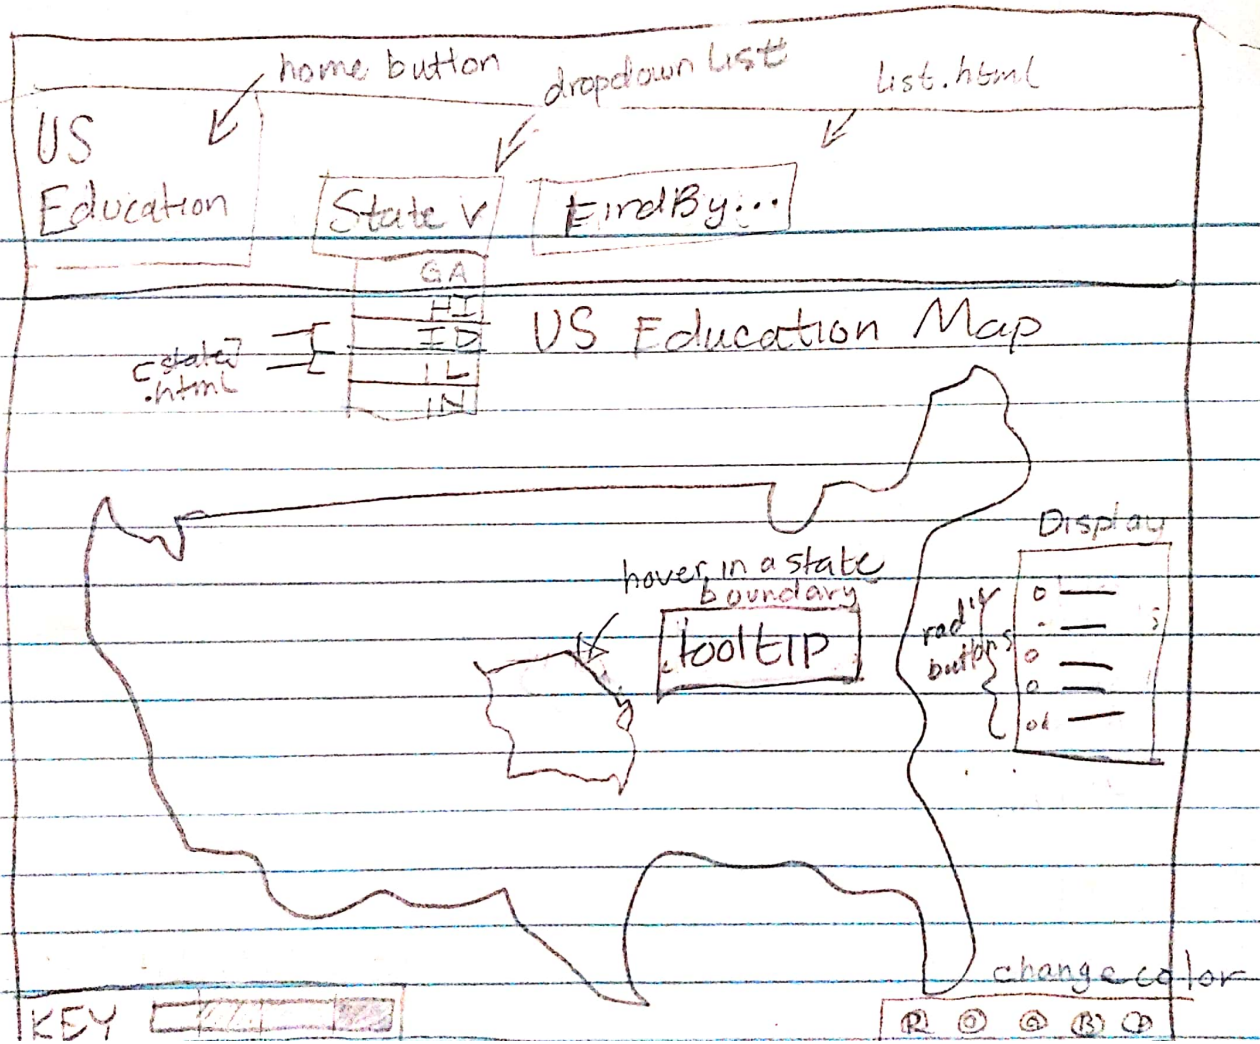 home button
dropdown list
list.html
US
Education
State v
FindBy...
GA
HI
ID
IL
IN
[state]
.html
US Education Map
Display
hover in a state
boundary
tooltip
radio
buttons
change color
KEY
R O G B P